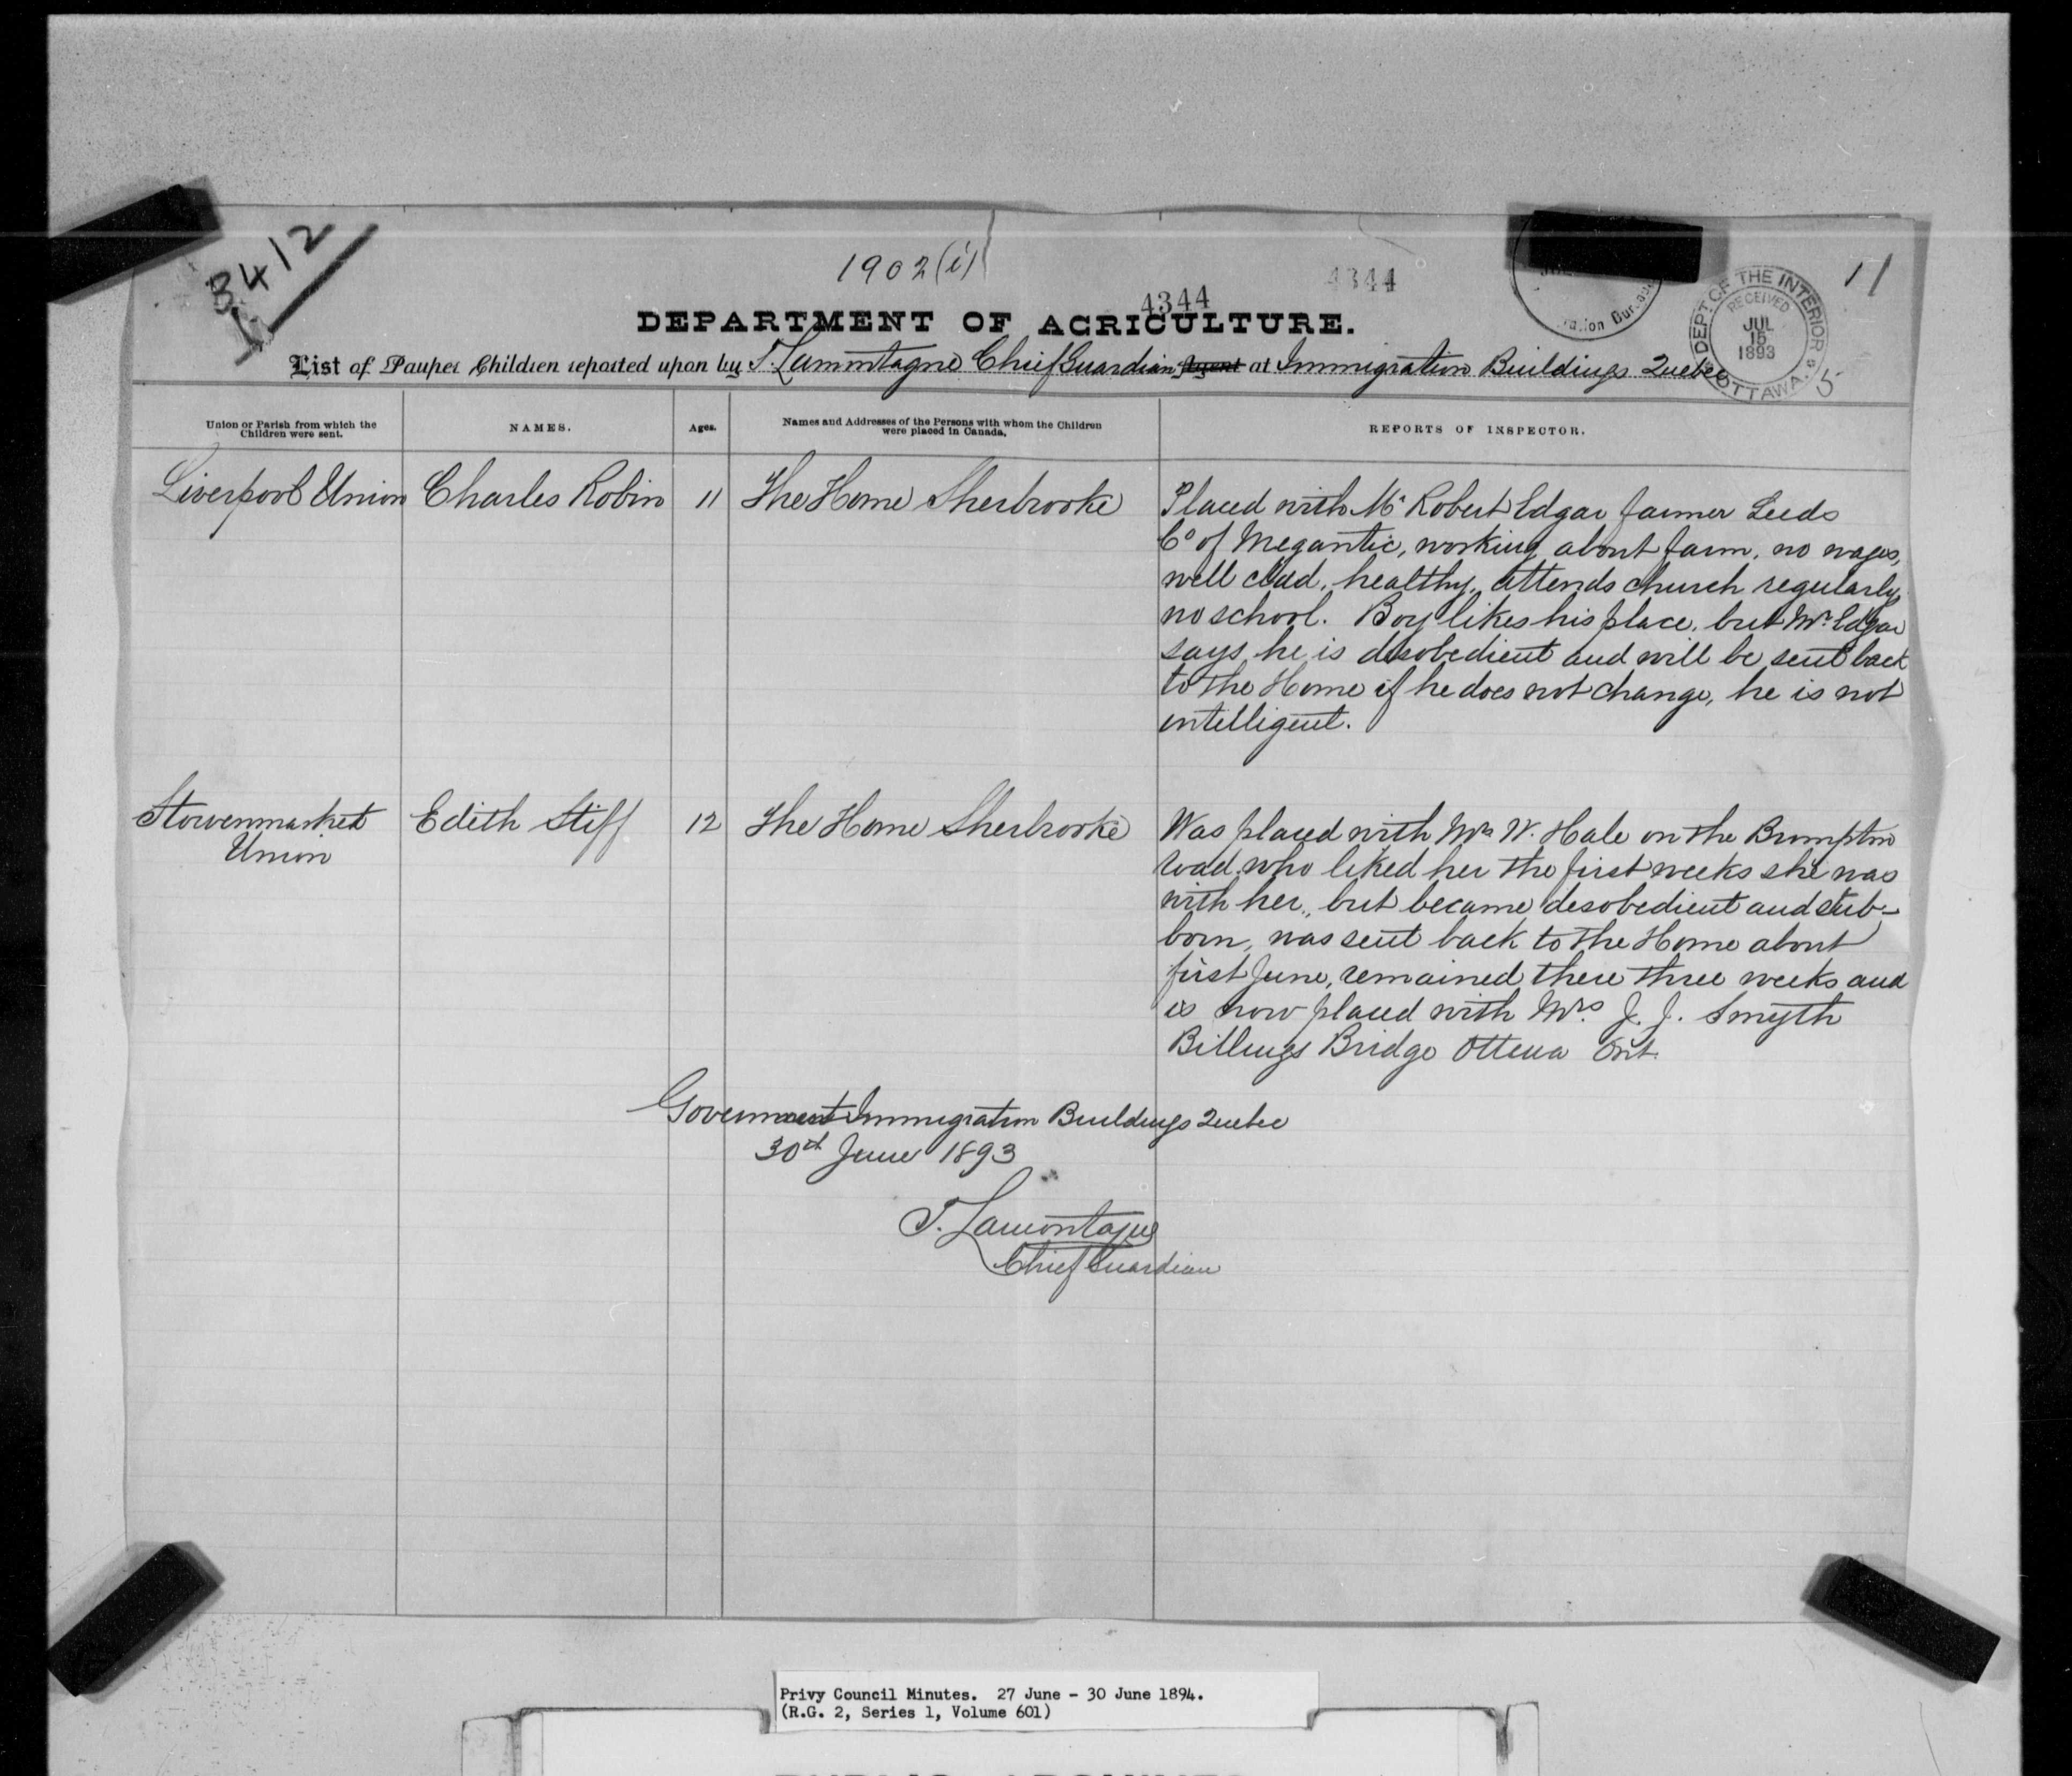 3412
1902(i)
4344
4344
11
DEPT. OF THE INTERIOR
RECEIVED
JUL
15
1893
OTTAWA.
5
DEPARTMENT OF AGRICULTURE.
List of Pauper Children reported upon by T. Lammtagne Chief Guardian Agent at Immigration Buildings Quebec
Union or Parish from which the
Children were sent.
NAMES.
Ages.
Names and Addresses of the Persons with whom the Children
were placed in Canada.
REPORTS OF INSPECTOR.
Liverpool Union Charles Robin 11 The Home Sherbrooke
Placed with Mr Robert Edgar farmer Leeds
Co of Megantic, working about farm, no wages,
well clad, healthy, attends church regularly,
no school. Boy likes his place, but Mr. Edgar
says he is disobedient and will be sent back
to the Home if he does not change, he is not
intelligent.
Stowenmarket
Union
Edith Stiff 12 The Home Sherbrooke
Was placed with Mrs W. Hale on the Brompton
road who liked her the first weeks she was
with her, but became desobedient and stub-
born, was sent back to the Home about
first June, remained there three weeks and
is now placed with Mrs. J. J. Smyth
Billings Bridge Ottewa Ont.
Government Immigration Buildings Quebec
30th June 1893
T. Lamontagne
Chief Guardian
Privy Council Minutes. 27 June - 30 June 1894.
(R.G. 2, Series 1, Volume 601)